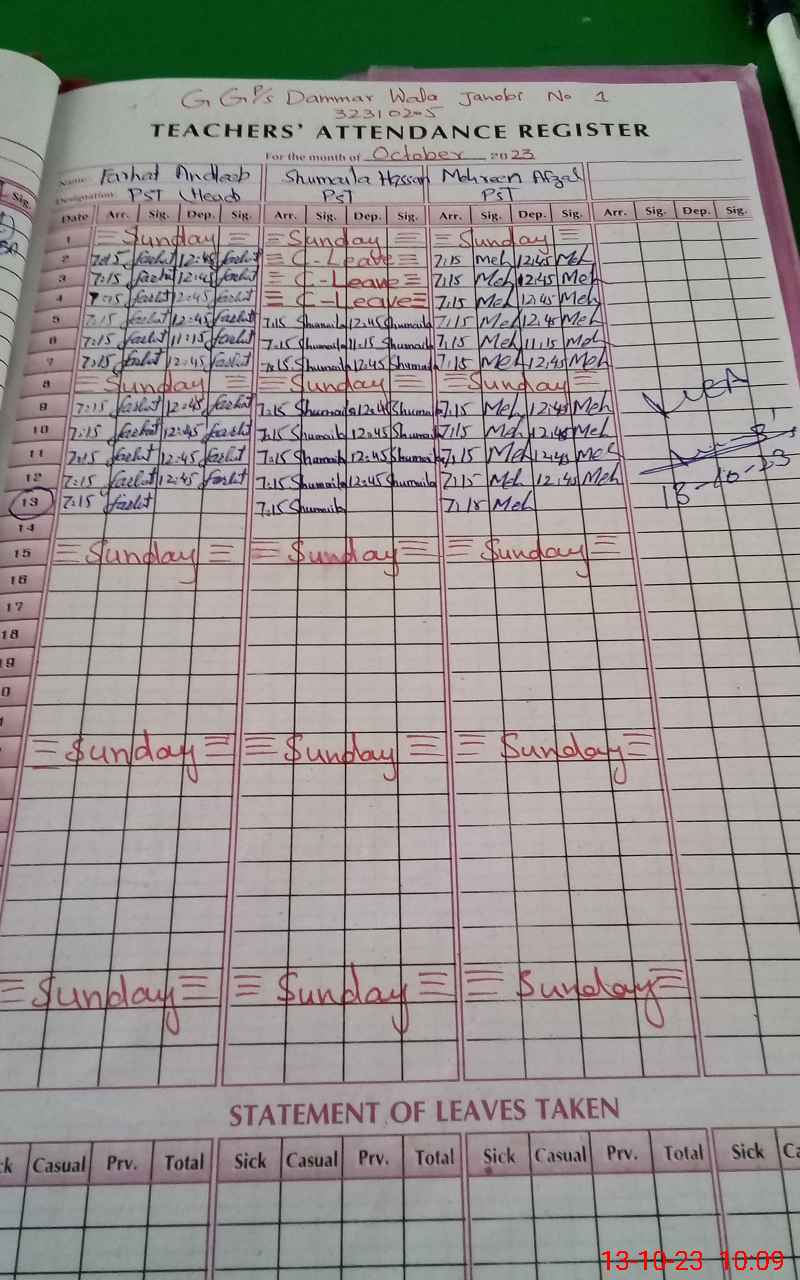 G GP/s Dammar Wala Janobi No 1
32310205
TEACHERS' ATTENDANCE REGISTER
For the month of October 2023
Name Farhat Andleeb Shumaila Hassan Mehreen Afzal
Designation PST (Head) PST PST
Sig. Date Arr. Sig. Dep. Sig. Arr. Sig. Dep. Sig. Arr. Sig. Dep. Sig. Arr. Sig. Dep. Sig.
1 Sunday Sunday Sunday
2 7:15 farhat 12:45 farhat C-Leave 7:15 Meh 12:45 Meh
3 7:15 farhat 12:45 farhat C-Leave 7:15 Meh 12:45 Meh
4 7:15 farhat 12:45 farhat C-Leave 7:15 Meh 12:45 Meh
5 7:15 farhat 12:45 farhat 7:15 Shumaila 12:45 Shumaila 7:15 Meh 12:45 Meh
6 7:15 farhat 11:15 farhat 7:15 Shumaila 11:15 Shumaila 7:15 Meh 11:15 Meh
7 7:15 farhat 12:45 farhat 7:15 Shumaila 12:45 Shumaila 7:15 Meh 12:45 Meh
8 Sunday Sunday Sunday
9 7:15 farhat 12:45 farhat 7:15 Shumaila 12:45 Shumaila 7:15 Meh 12:45 Meh
10 7:15 farhat 12:45 farhat 7:15 Shumaila 12:45 Shumaila 7:15 Meh 12:45 Meh
11 7:15 farhat 12:45 farhat 7:15 Shumaila 12:45 Shumaila 7:15 Meh 12:45 Meh
12 7:15 farhat 12:45 farhat 7:15 Shumaila 12:45 Shumaila 7:15 Meh 12:45 Meh
13 7:15 farhat 7:15 Shumaila 7:15 Meh 13-10-23
14
15 Sunday Sunday Sunday
16
17
18
19
Sunday Sunday Sunday
Sunday Sunday Sunday
STATEMENT OF LEAVES TAKEN
Casual Prv. Total Sick Casual Prv. Total Sick Casual Prv. Total Sick
13-10-23 10:09